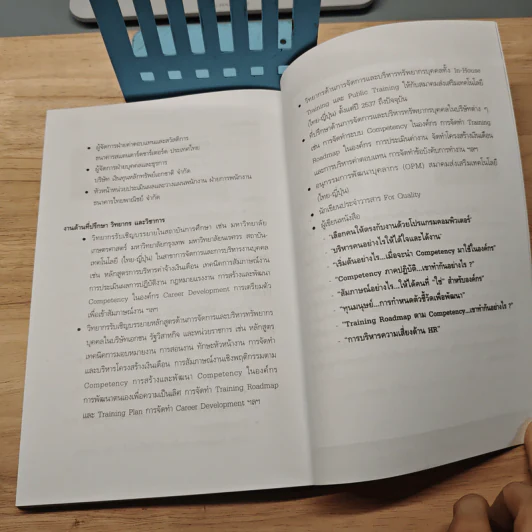 ผู้จัดการฝ่ายค่าตอบแทนและสวัสดิการ
ธนาคารสแตนดาร์ดชาร์เตอร์ด ประเทศไทย
ผู้จัดการฝ่ายบุคคลและธุรการ
บริษัท เงินทุนหลักทรัพย์เอกชาติ จำกัด
หัวหน้าหน่วยประเมินผลและวางแผนพนักงาน ฝ่ายการพนักงาน
ธนาคารไทยพาณิชย์ จำกัด
งานด้านที่ปรึกษา วิทยากร และวิชาการ
วิทยากรรับเชิญบรรยายในสถาบันการศึกษา เช่น มหาวิทยาลัย
เกษตรศาสตร์ มหาวิทยาลัยกรุงเทพ มหาวิทยาลัยนเรศวร สถาบัน
เทคโนโลยี (ไทย-ญี่ปุ่น) ในสาขาการจัดการและการบริหารงานบุคคล
เช่น หลักสูตรการบริหารค่าจ้างเงินเดือน เทคนิคการสัมภาษณ์งาน
การประเมินผลการปฏิบัติงาน กฎหมายแรงงาน การสร้างและพัฒนา
Competency ในองค์กร Career Development การเตรียมตัว
เพื่อเข้าสัมภาษณ์งาน ฯลฯ
วิทยากรรับเชิญบรรยายหลักสูตรด้านการจัดการและบริหารทรัพยากร
บุคคลในบริษัทเอกชน รัฐวิสาหกิจ และหน่วยราชการ เช่น หลักสูตร
เทคนิคการมอบหมายงาน การสอนงาน ทักษะหัวหน้างาน การจัดทำ
และบริหารโครงสร้างเงินเดือน การสัมภาษณ์งานเชิงพฤติกรรมตาม
Competency การสร้างและพัฒนา Competency ในองค์กร
การพัฒนาตนเองเพื่อความเป็นเลิศ การจัดทำ Training Roadmap
และ Training Plan การจัดทำ Career Development ฯลฯ
วิทยากรด้านการจัดการและบริหารทรัพยากรบุคคลทั้ง In-House
Training และ Public Training ให้กับสมาคมส่งเสริมเทคโนโลยี
(ไทย-ญี่ปุ่น) ตั้งแต่ปี 2537 ถึงปัจจุบัน
ที่ปรึกษาด้านการจัดการและบริหารทรัพยากรบุคคลในบริษัทต่าง ๆ
เช่น การจัดทำระบบ Competency ในองค์กร การจัดทำ Training
Roadmap ในองค์กร การประเมินค่างาน จัดทำโครงสร้างเงินเดือน
และการบริหารค่าตอบแทน การจัดทำข้อบังคับการทำงาน ฯลฯ
อนุกรรมการพัฒนาบุคลากร (OPM) สมาคมส่งเสริมเทคโนโลยี
(ไทย-ญี่ปุ่น)
นักเขียนประจำวารสาร For Quality
ผู้เขียนหนังสือ
- "เลือกคนให้ตรงกับงานด้วยโปรแกรมคอมพิวเตอร์"
- "บริหารคนอย่างไรให้ได้ใจและได้งาน"
- "เริ่มต้นอย่างไร...เมื่อจะนำ Competency มาใช้ในองค์กร"
- "Competency ภาคปฏิบัติ...เขาทำกันอย่างไร ?"
- "สัมภาษณ์อย่างไร...ให้ได้คนที่ "ใช่" สำหรับองค์กร"
- "ทุนมนุษย์...การกำหนดตัวชี้วัดเพื่อพัฒนา"
- "Training Roadmap ตาม Competency...เขาทำกันอย่างไร ?"
- "การบริหารความเสี่ยงด้าน HR"